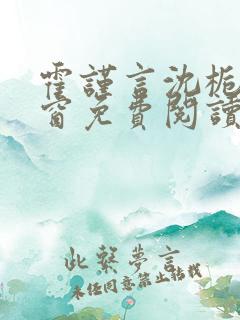 霍謹言沈栀
窗免費閱讀
此繫夢言
未经同意禁止转载